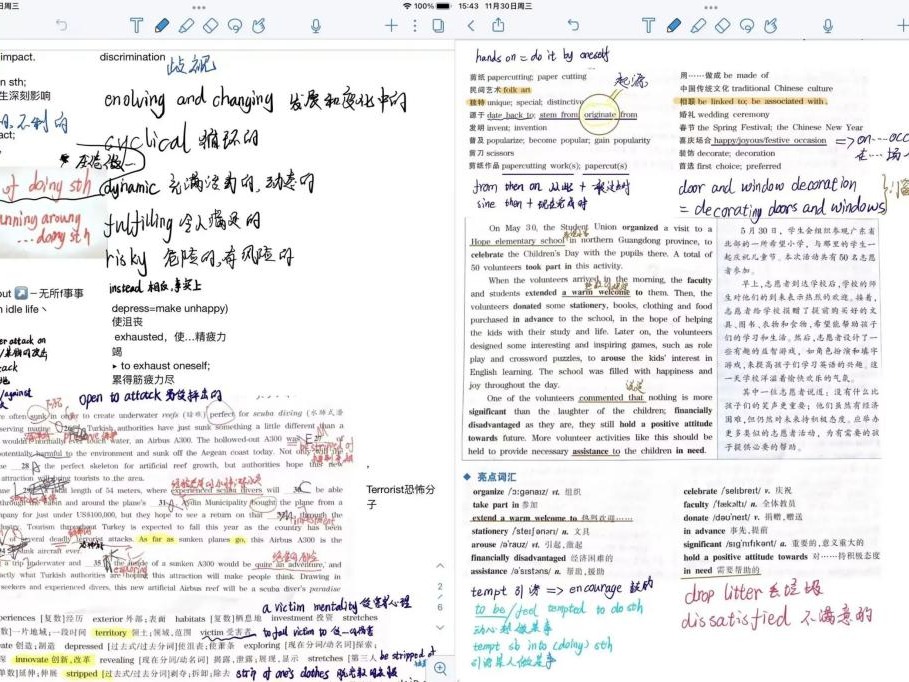 日周三
100%
15:43 11月30日周三
impact.
discrimination
歧视
n sth;
生深刻影响
不利的
act;
of doing sth
... doing sth
evolving and changing 发展和变化中的
cyclical 循环的
dynamic 充满活力的,动态的
fulfilling 令人满足的
risky 危险的,有风险的
instead 相反,事实上
out ↗ – 无所事事
n idle life、
depress=make unhappy)
使沮丧
exhausted，使…精疲力
竭
▸ to exhaust oneself;
累得筋疲力尽
er attack on
tack
/against
open to attack 易受抨击的
often sunk in order to create underwater reefs (暗礁) perfect for scuba diving (水肺式潜
serving marine Turkish authorities have just sunk something a little different than a
wouldn't normally ever touch water, an Airbus A300. The hollowed-out A300 was
potentially harmful to the environment and sunk off the Aegean coast today. Not only will the
28 the perfect skeleton for artificial reef growth, but authorities hope this new
attraction will bring tourists to the area.
length of 54 meters, where experienced scuba divers will 30 be able
through the and around the plane's 31 Aydin Municipality bought the plane from a
mpany for just under US$100,000, but they hope to see a return on that through the
ustry. Tourism throughout Turkey is expected to fall this year as the country has been
of several deadly terrorist attacks. As far as sunken planes go, this Airbus A300 is
sunk aircraft ever.
a trip underwater and 35 the inside of a sunken A300 would be quite an adventure, and
actly what Turkish authorities are hoping this attraction will make people think. Drawing in
seekers and experienced divers, this new artificial Airbus reef will be a scuba diver's paradise
Terrorist恐怖分
子
2
6
a victim mentality 受害者心理
periences [复数]经历 exterior 外部;表面 habitats [复数]栖息地 investment 投资 stretches
数]一片地域;一段时间 territory 领土;领域,范围 victim 受害者
to fall victim to 受…的伤害
ate 创造;制造 depressed [过去式/过去分词]使沮丧;使萧条 exploring [现在分词/动名词]探索;
innovate 创新,改革 revealing [现在分词/动名词] 揭露,泄露;展现,显示 stretches [第三人
be stripped of
单数]延伸;伸展 stripped [过去式/过去分词]剥夺;拆卸;除去
strip of one's clothes
hands on = do it by oneself
剪纸 papercutting; paper cutting
民间艺术 folk art
起源
独特 unique; special; distinctive
源于 date back to; stem from originate from
发明 invent; invention
普及 popularize; become popular; gain popularity
剪刀 scissors
剪纸作品 papercutting work(s); papercut(s)
from then on 从此 + 一般过去时
sine then + 现在完成时
用……做成 be made of
中国传统文化 traditional Chinese culture
相联 be linked to; be associated with.
婚礼 wedding ceremony
春节 the Spring Festival; the Chinese New Year
喜庆场合 happy/joyous/festive occasion ⇒ on ... occ
在…场合
装饰 decorate; decoration
首选 first choice; preferred
door and window decoration
= decorating doors and windows
On May 30, the Student Union organized a visit to a
Hope elementary school in northern Guangdong province, to
celebrate the Children's Day with the pupils there. A total of
50 volunteers took part in this activity.
When the volunteers arrived in the morning, the faculty
and students extended a warm welcome to them. Then, the
volunteers donated some stationery, books, clothing and food
purchased in advance to the school, in the hope of helping
the kids with their study and life. Later on, the volunteers
designed some interesting and inspiring games, such as role
play and crossword puzzles, to arouse the kids' interest in
English learning. The school was filled with happiness and
joy throughout the day.
评论说
One of the volunteers commented that nothing is more
significant than the laughter of the children; financially
disadvantaged as they are, they still hold a positive attitude
towards future. More volunteer activities like this should be
held to provide necessary assistance to the children in need.
5月30日，学生会组织参观广东省
北部的一所希望小学，与那里的学生一
起庆祝儿童节。本次活动共有50名志愿
者参加。
早上，志愿者到达学校后，学校的师
生对他们的到来表示热烈的欢迎。接着，
志愿者给学校捐赠了提前购买好的文
具、图书、衣物和食物，希望能帮助孩子
们的学习和生活。然后，志愿者设计了一
些有趣的益智游戏，如角色扮演和填字
游戏，来提高孩子们学习英语的兴趣。这
一天学校洋溢着愉快欢乐的气氛。
其中一位志愿者说道：没有什么比
孩子们的笑声更重要；他们虽然有经济
困难，但仍然对未来持积极态度。应举办
更多类似的志愿者活动，为有需要的孩
子提供必要的帮助。
◆ 亮点词汇
organize /ˈɔːɡənaɪz/ vt. 组织
take part in 参加
extend a warm welcome to 热烈欢迎……
stationery /ˈsteɪʃənəri/ n. 文具
arouse /əˈraʊz/ vt. 引起,激起
financially disadvantaged 经济困难的
assistance /əˈsɪstəns/ n. 帮助,援助
celebrate /ˈselɪbreɪt/ v. 庆祝
faculty /ˈfækəlti/ n. 全体教员
donate /dəʊˈneɪt/ v. 捐赠,赠送
in advance 事先,提前
significant /sɪɡˈnɪfɪkənt/ a. 重要的,意义重大的
hold a positive attitude towards 对……持积极态度
in need 需要帮助的
tempt 引诱 ⇒ encourage 鼓励
to be/feel tempted to do sth
动心想做某事
tempt sb into (doing) sth
引诱某人做某事
drop litter 丢垃圾
dissatisfied 不满意的